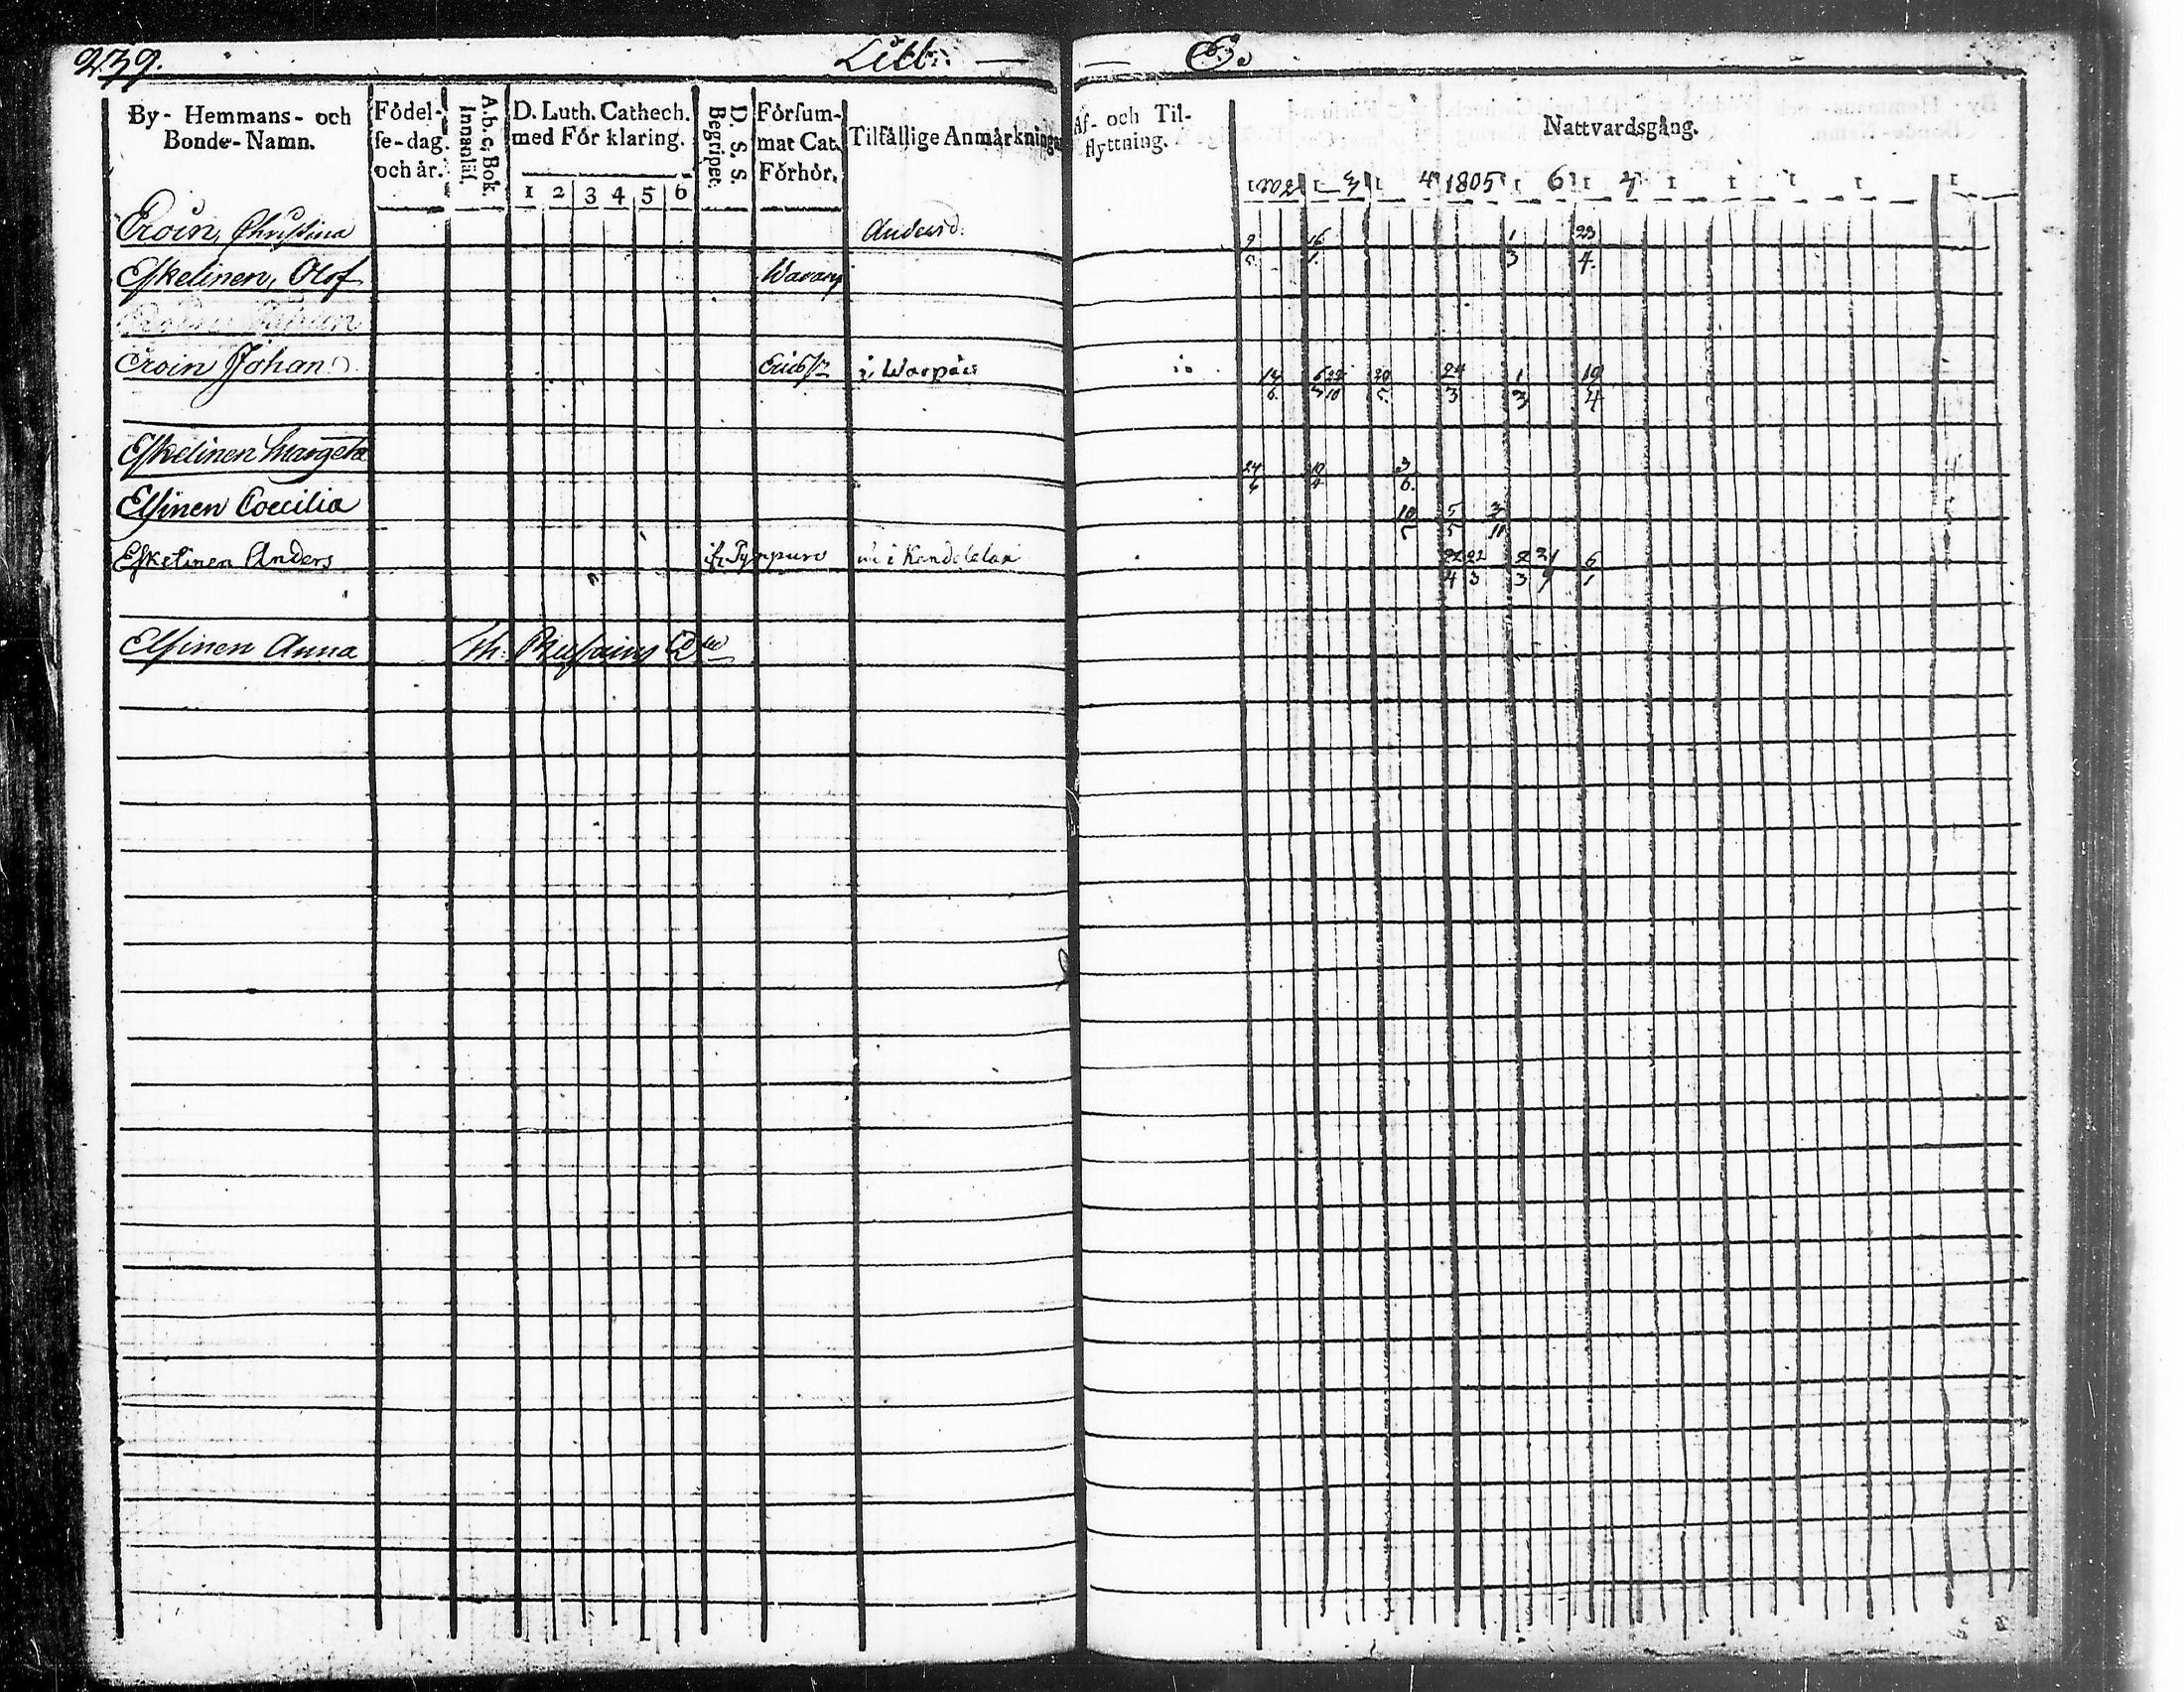 239. Litt: — — E.
By- Hemmans- och Bonde-Namn.
Födel-se-dag och år.
A.b.c. Bok. Innanläs.
D. Luth. Cathech. med För klaring.
1 2 3 4 5 6
D. S. S. Begripet.
Försum-mat Cat. Förhör.
Tilfällige Anmärkningar
Af- och Til-flyttning.
Nattvardsgång.
1802 1 3 1 4 1805 1 6 1 7 1 1 1 1 1
Eroin, Christina Andersd. 9 16 1 23
5 1 3 4
Eskelinen, Olof
Eroin Johan i 14 6 22 20 24 1 19
6 10 5 3 3 4
Eskelinen Margeta 24 10 3
6 4 6
Elsinen Coecilia 10 5 3
5 5 11
Eskelinen Anders 22 22 2 21 6
4 3 3 9 1
Elsinen Anna